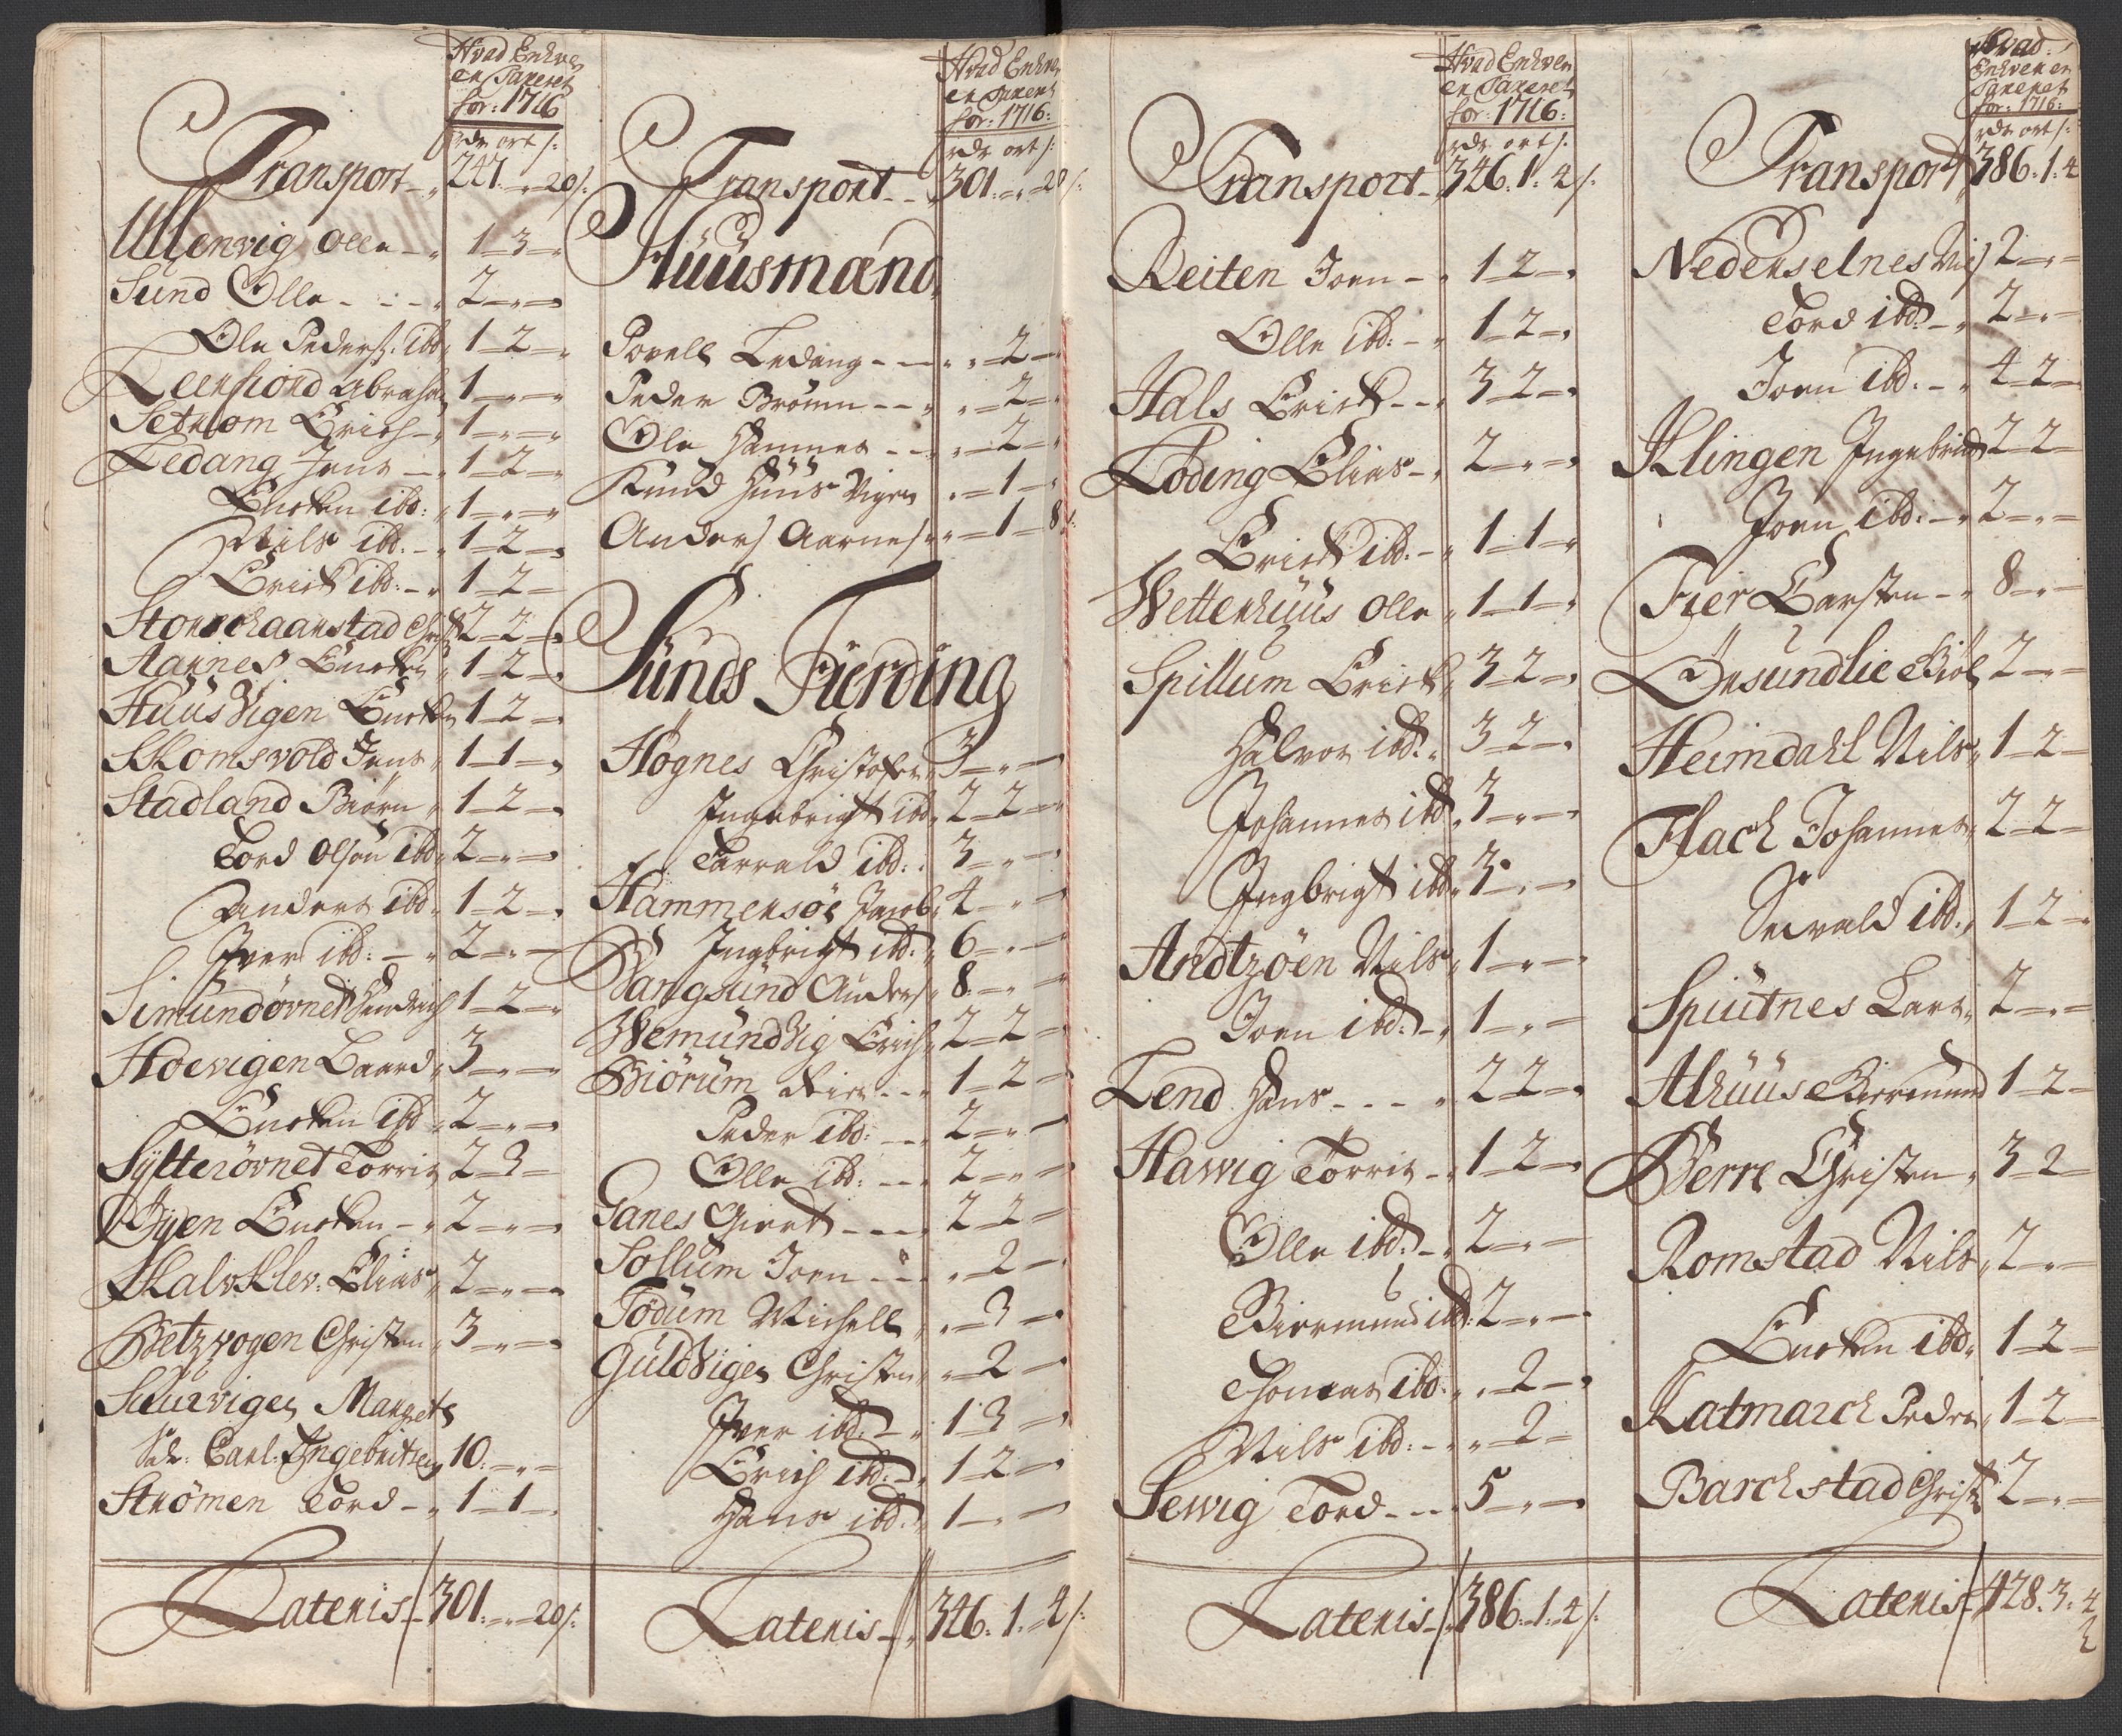 Hvad Enhver
er Taxeret
for: 1716
rdr ort s:
Transport 247 „ 20 s:
Ullenvig Olle 1 3 „
Sund Olle 2 „ „
Ole Peders: ibd 1 2 „
Leenfiord Abraham 1 „ „
Erich 1 „ „
Ledang Jens 1 2 „
Enoken ibd: 1 „ „
Nils ibd: 1 2 „
Erick ibd: 1 2 „
2 2 „
Aarnes Enoken 1 2 „
Huusvigen Enoken 1 2 „
Skomsvold Jens 1 1 „
Stadland Biørn 1 2 „
Tord Olsøn ibd 2 „ „
Anders ibd 1 2 „
Iver ibd: 2 „ „
Simundøvnet Hendrich 1 2 „
Hoevigen Baard 3 „ „
Enoken ibd 2 „ „
Sÿlterövnet Torris 2 3 „
Öÿen Enoken 2 „ „
Kalvklev: Elias 2 „ „
Betzvogen Christen 3 „ „
Margrete
Sal: Carl: Ingebritsen 10 „ „
Strömen Tord 1 1 „
Lateris 301: „ 20 s:
Hvad Enhver
er Taxeret
for: 1716:
rdr ort s:
Transport 301: „ 20 s:
Huusmænd
Povell Ledang „ 2 „
Peder Brönn „ 2 „
Ole Hammer „ 2 „
Knud Huus Vigen „ 1 „
Anders Aarnes „ 1 8 s:
Sünds Fierding
Högnes Christofer 3 „ „
Ingebrigt ibd 2 2 „
Tarrald ibd: 3 „ „
Hammersöe Jacob 4 „ „
Ingbrigt ibd: 6 „ „
Bangsund Anders 8 „ „
Wemundvig Erich 2 2 „
Biörum 1 2 „
Peder ibd: 2 „ „
Olle ibd: 2 „ „
Ganes Giert 2 2 „
Sollum Joen „ 2 „
Tödum Michell „ 3 „
Guldvigen Christen „ 2 „
Iver ibd: 1 3 „
Erich ibd: 1 2 „
Hans ibd: 1 „ „
Lateris 346: 1: 4 s:
Hvad Enhver
er Taxeret
for: 1716:
rdr ort s:
Transport 346: 1: 4 s:
Reiten Joen 1 2 „
Olle ibd: 1 2 „
Hals Erick 3 2 „
Löding Elias 2 „ „
Erick ibd: 1 1 „
Wetterhuus Olle 1 1 „
Spillum Erick 3 2 „
Halvor ibd: 3 2 „
Johannes ibd 3 „ „
Ingbrigt ibd 3 „ „
Andtzöen Nils 1 „ „
Joen ibd: 1 „ „
Lend Hans 2 2 „
Havvig Torris 1 2 „
Olle ibd: 2 „ „
Biermund ibd: 2 „ „
Thomas ibd: „ 2 „
Nils ibd: „ 2 „
Sevvig Tord 5 „ „
Lateris 386: 1: 4 s:
Hvad
Enhver er
Taxeret
for: 1716:
rdr ort s:
Transport 386: 1: 4
Nederselnes Nils 2 „ „
Tord ibd: 2 „ „
Joen ibd: 4 2 „
Klingen Ingebrict 2 2 „
Joen ibd: 2 „ „
Fier Carsten 8 „ „
Örsundlie 2 „ „
Heimdahl Nils 1 2 „
Flach Johannes 2 2 „
Sivald ibd: 1 2 „
Spiutnes Lars 2 „ „
Alhuus Biermund 1 2 „
Berre Christen 3 2 „
Romstad Nils 2 „ „
Enoken ibd: 1 2 „
Katmarch Peder 1 2 „
Barchstad Christ 2 „ „
Lateris 428: 3: 4